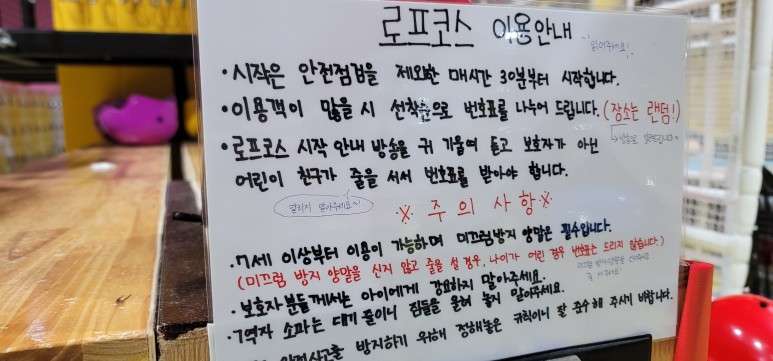 로프코스 이용안내
읽어주세요!
· 시작은 안전점검을 제외한 매시간 30분부터 시작합니다.
· 이용객이 많을 시 선착순으로 번호표를 나누어 드립니다. (장소는 랜덤!)
· 로프코스 시작 안내 방송을 귀 기울여 듣고 보호자가 아닌
어린이 친구가 줄을 서서 번호표를 받아야 합니다.
※ 주의사항 ※
· 7세 이상부터 이용이 가능하며 미끄럼방지 양말은 필수입니다.
(미끄럼 방지 양말을 신지 않고 줄을 설 경우, 나이가 어린 경우 번호표는 드리지 않습니다.)
· 보호자분들께서는 아이에게 강요하지 말아주세요.
· ㄱ역자 소파는 대기 줄이니 짐들을 올려 놓지 말아주세요.
안전사고를 방지하기 위해 정해놓은 규칙이니 잘 준수해 주시기 바랍니다.